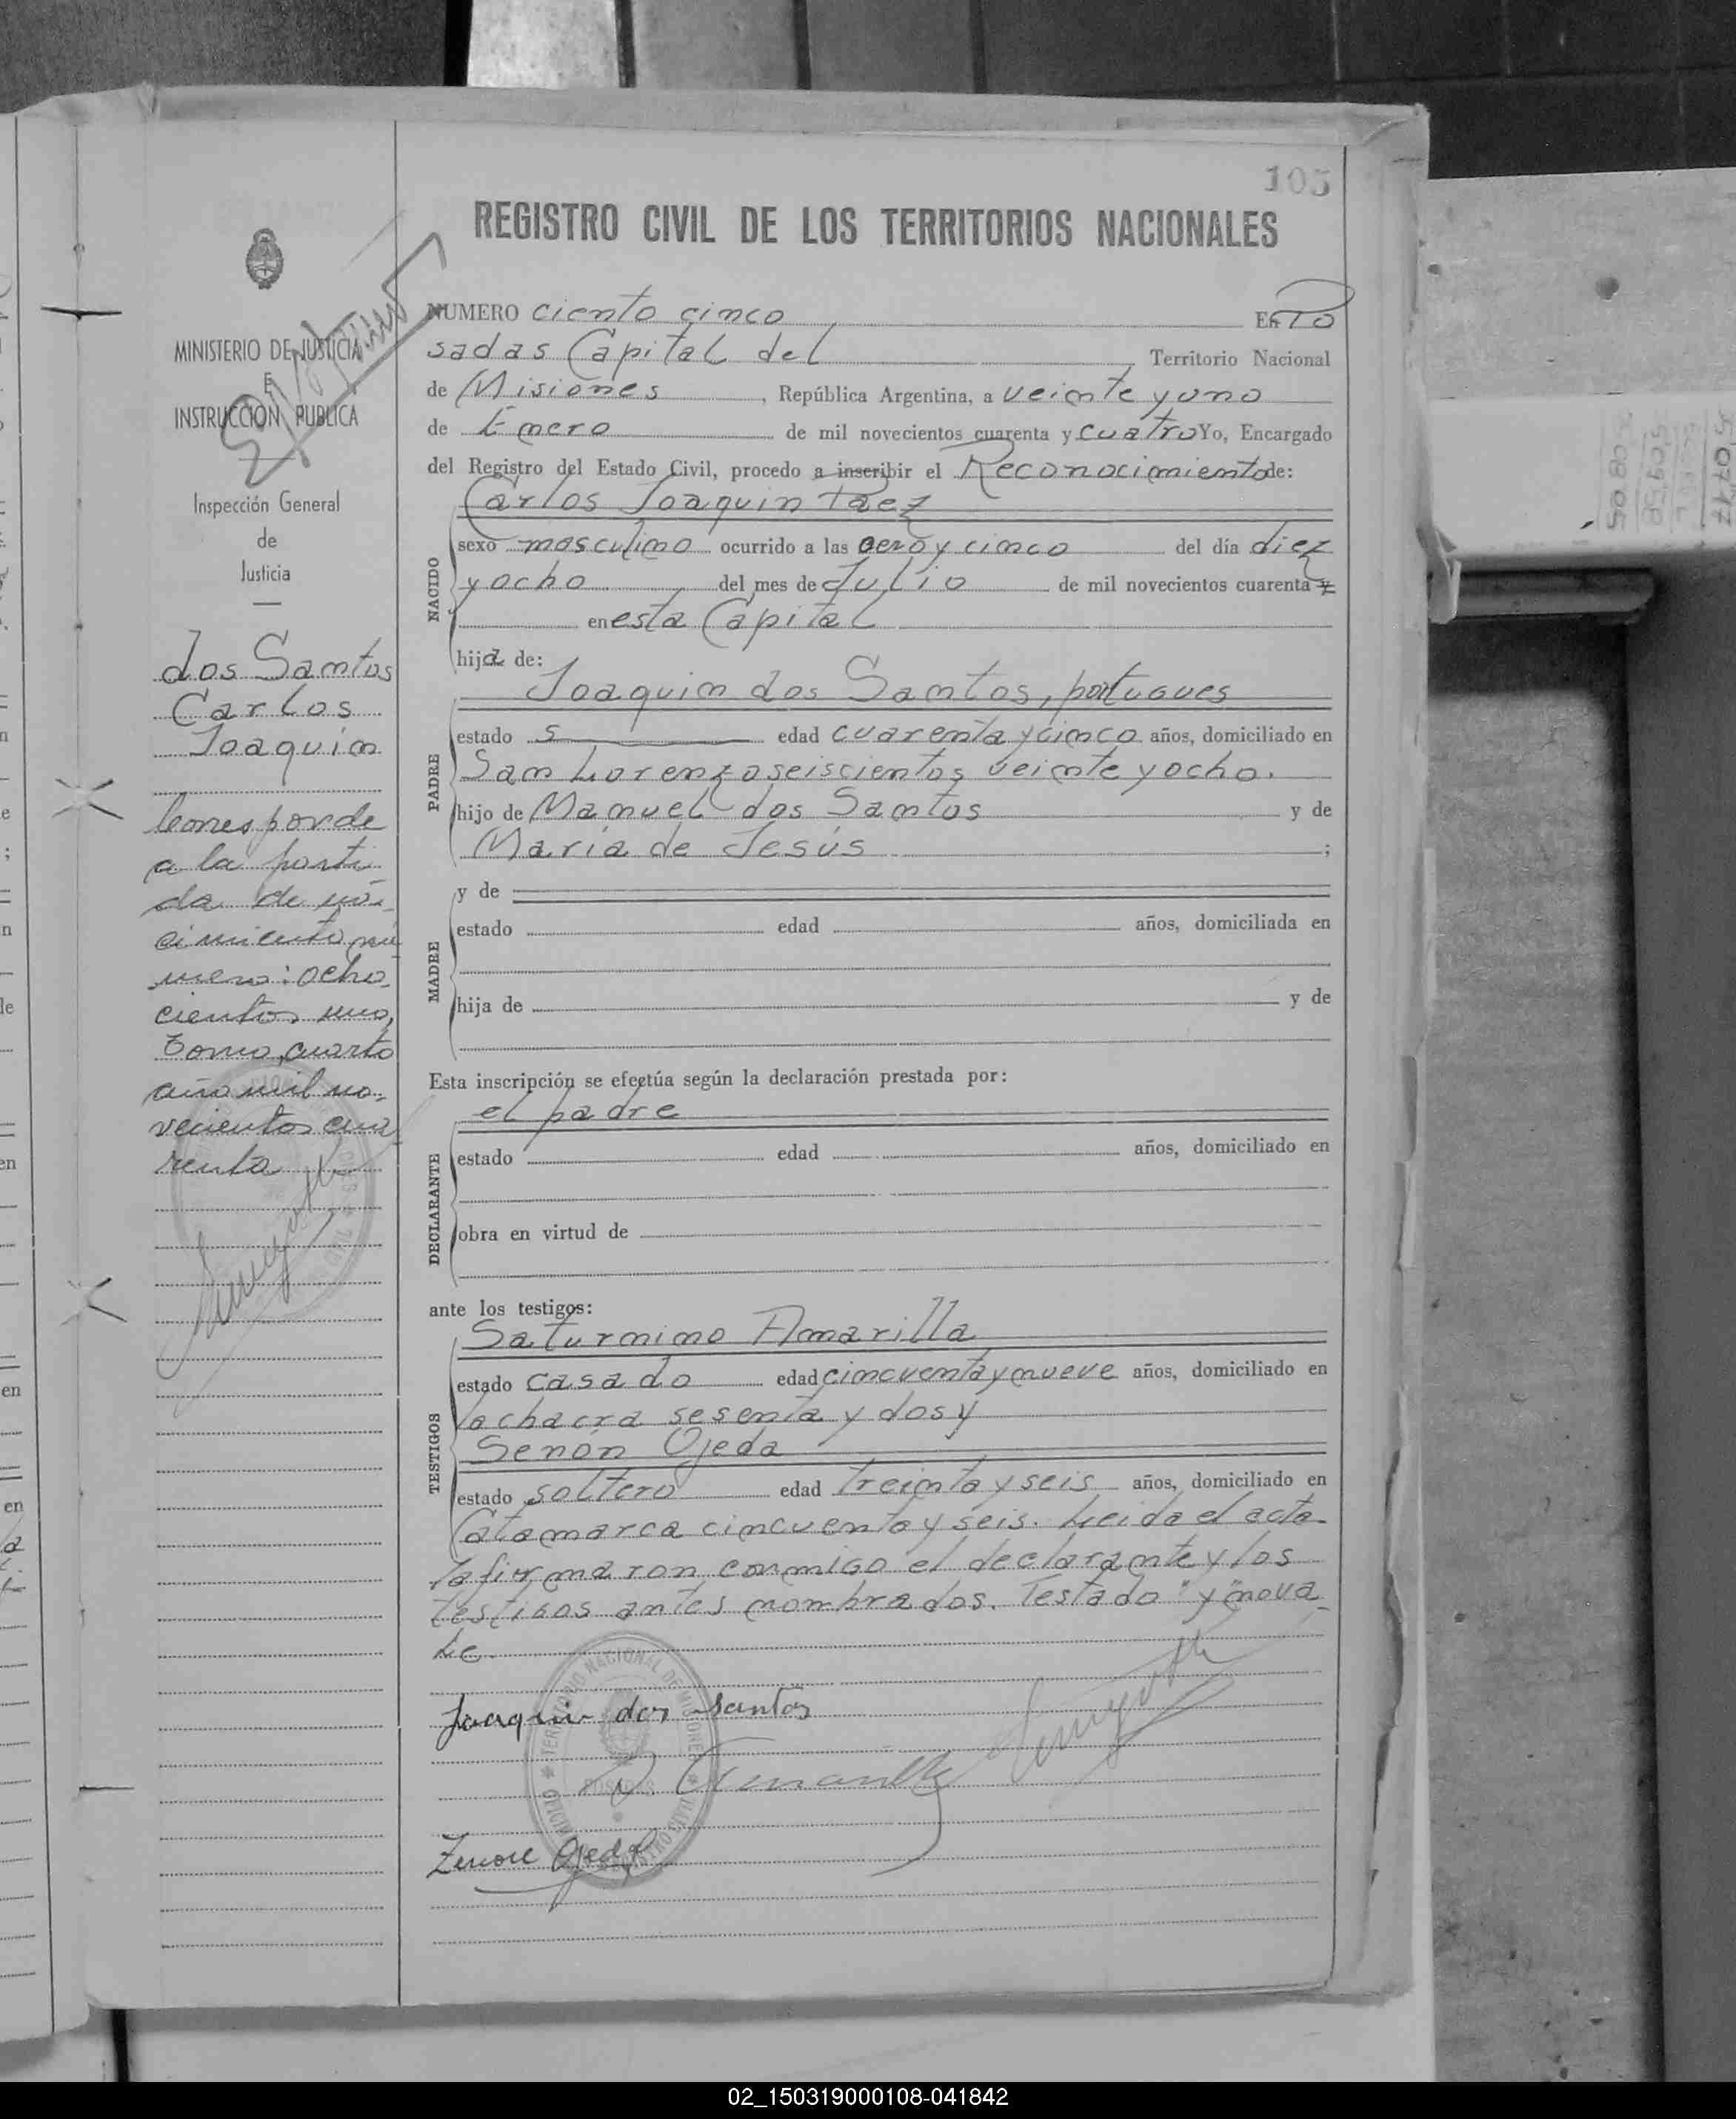 105
REGISTRO CIVIL DE LOS TERRITORIOS NACIONALES
MINISTERIO DE JUSTICIA
E
INSTRUCCION PUBLICA
Inspección General
de
Justicia
dos Santos
Carlos
Joaquin
Corresponde
a la parti
da de na-
cimiento nú
mero: ocho-
cientos uno,
Tomo, cuarto
año mil no-
vecientos cua
renta
NUMERO ciento cinco En Po
sadas Capital del Territorio Nacional
de Misiones, República Argentina, a veinte y uno
de Enero de mil novecientos cuarenta y cuatro Yo, Encargado
del Registro del Estado Civil, procedo a inscribir el Reconocimiento de:
Carlos Joaquin Paez
NACIDO
sexo masculino ocurrido a las cero y cinco del día diez
y ocho del mes de Julio de mil novecientos cuarenta y
en esta Capital
hijo de:
PADRE
Joaquin dos Santos, portugues
estado s edad cuarenta y cinco años, domiciliado en
San Lorenzo seiscientos veinte y ocho.
hijo de Manuel dos Santos y de
María de Jesús ;
MADRE
y de
estado edad años, domiciliada en
hija de y de
Esta inscripción se efectúa según la declaración prestada por:
DECLARANTE
el padre
estado edad años, domiciliado en
obra en virtud de
ante los testigos:
TESTIGOS
Saturnino Amarilla
estado casado edad cincuenta y nueve años, domiciliado en
la chacra sesenta y dos y
Senón Ojeda
estado soltero edad treinta y seis años, domiciliado en
Catamarca cincuenta y seis. Leida el acta
la firmaron conmigo el declarante y los
testigos antes nombrados. Testado "y" no va
le.
Joaquin dos Santos
S Amarilla
Zenon Ojeda
TERRITORIO NACIONAL DE MISIONES
POSADAS
REGISTRO CIVIL
50717
50958
50805
02_150319000108-041842